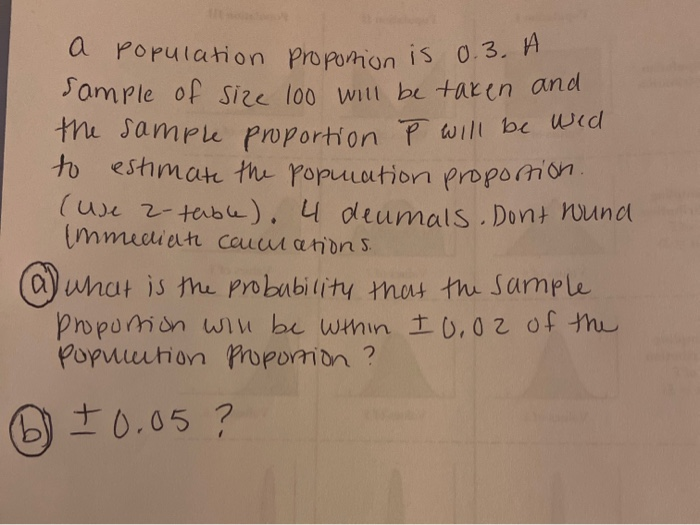 a population proportion is 0.3. A
sample of size 100 will be taken and
the sample proportion p̅ will be used
to estimate the population proportion.
(use z-table). 4 decimals. Dont round
immediate calculations.
(a) what is the probability that the sample
proportion will be within ± 0.02 of the
population proportion ?
(b) ± 0.05 ?